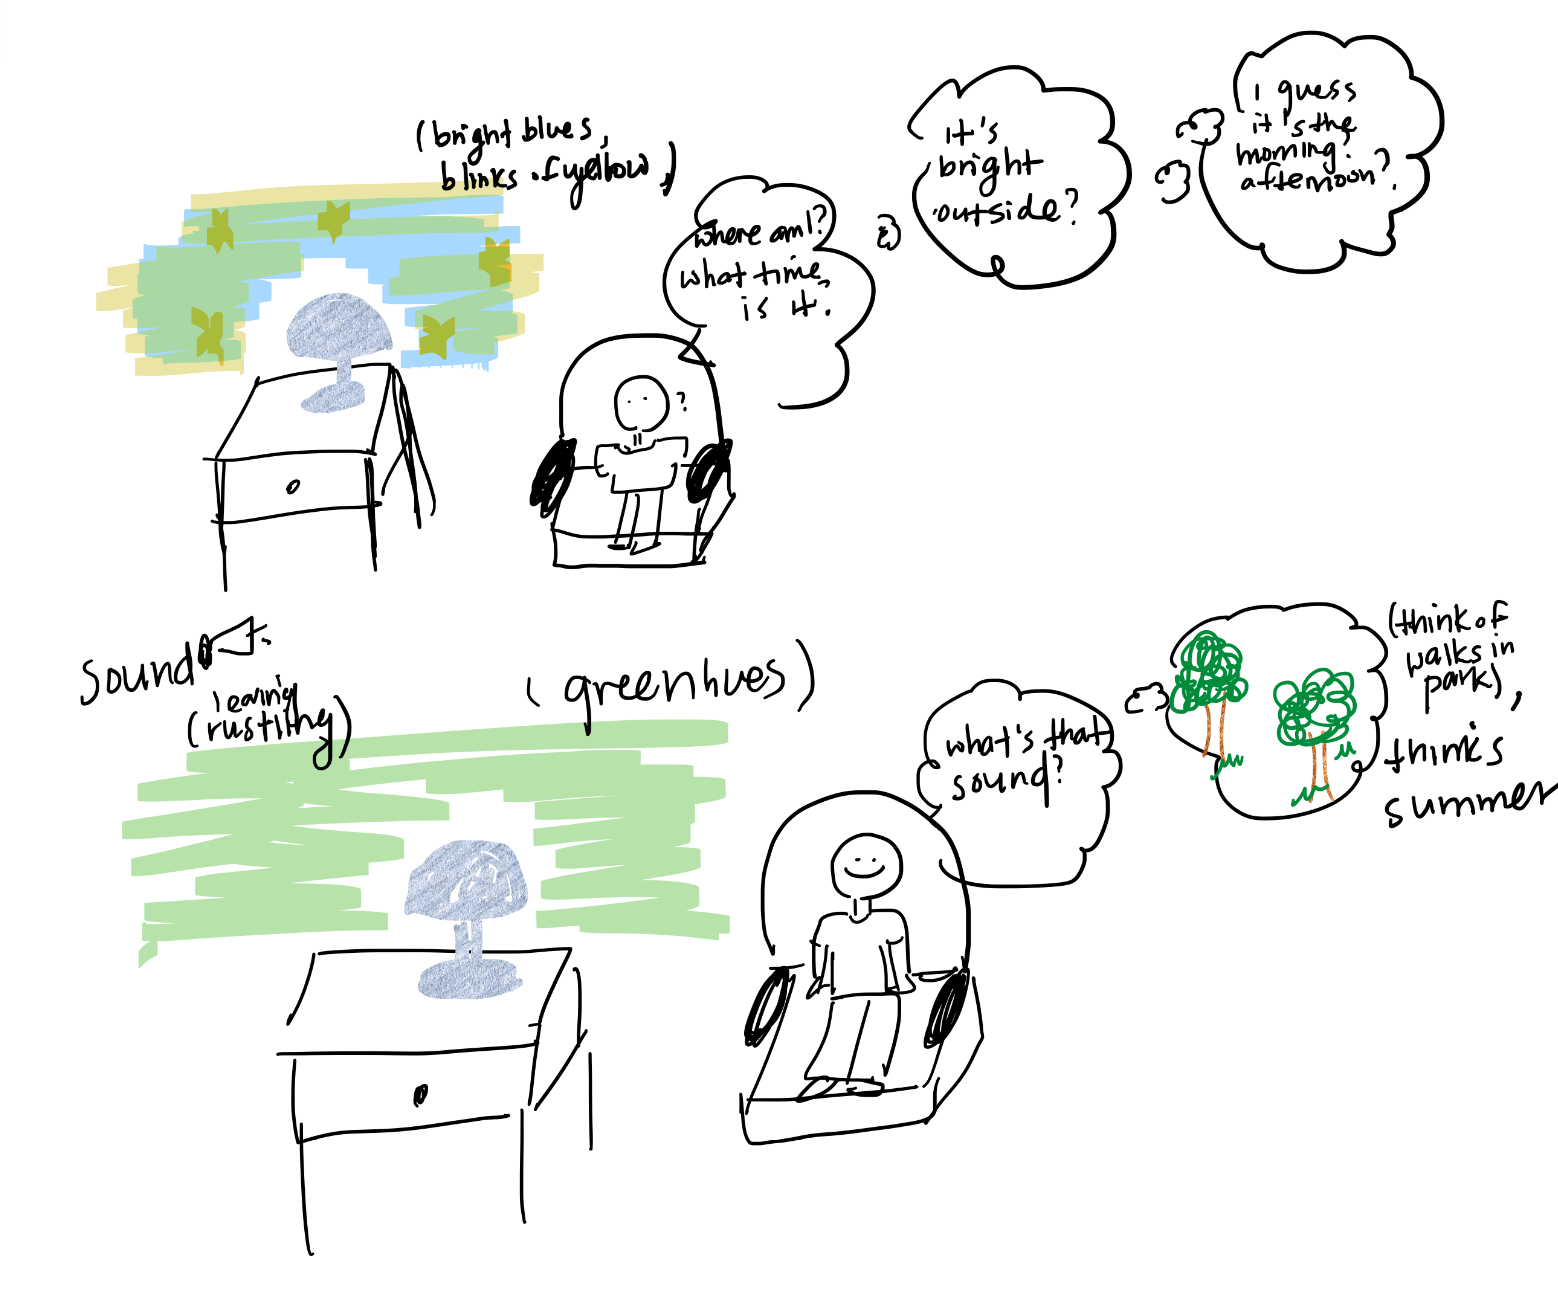 (bright blues,
blinks of yellow,)
where am I?
what time
is it?
?
it's
bright
outside?
I guess
it's the
morning?
afternoon?
Sound
(rustling)
(greenhues)
what's that
sound?
(think of
walks in
park),
thinks
summer